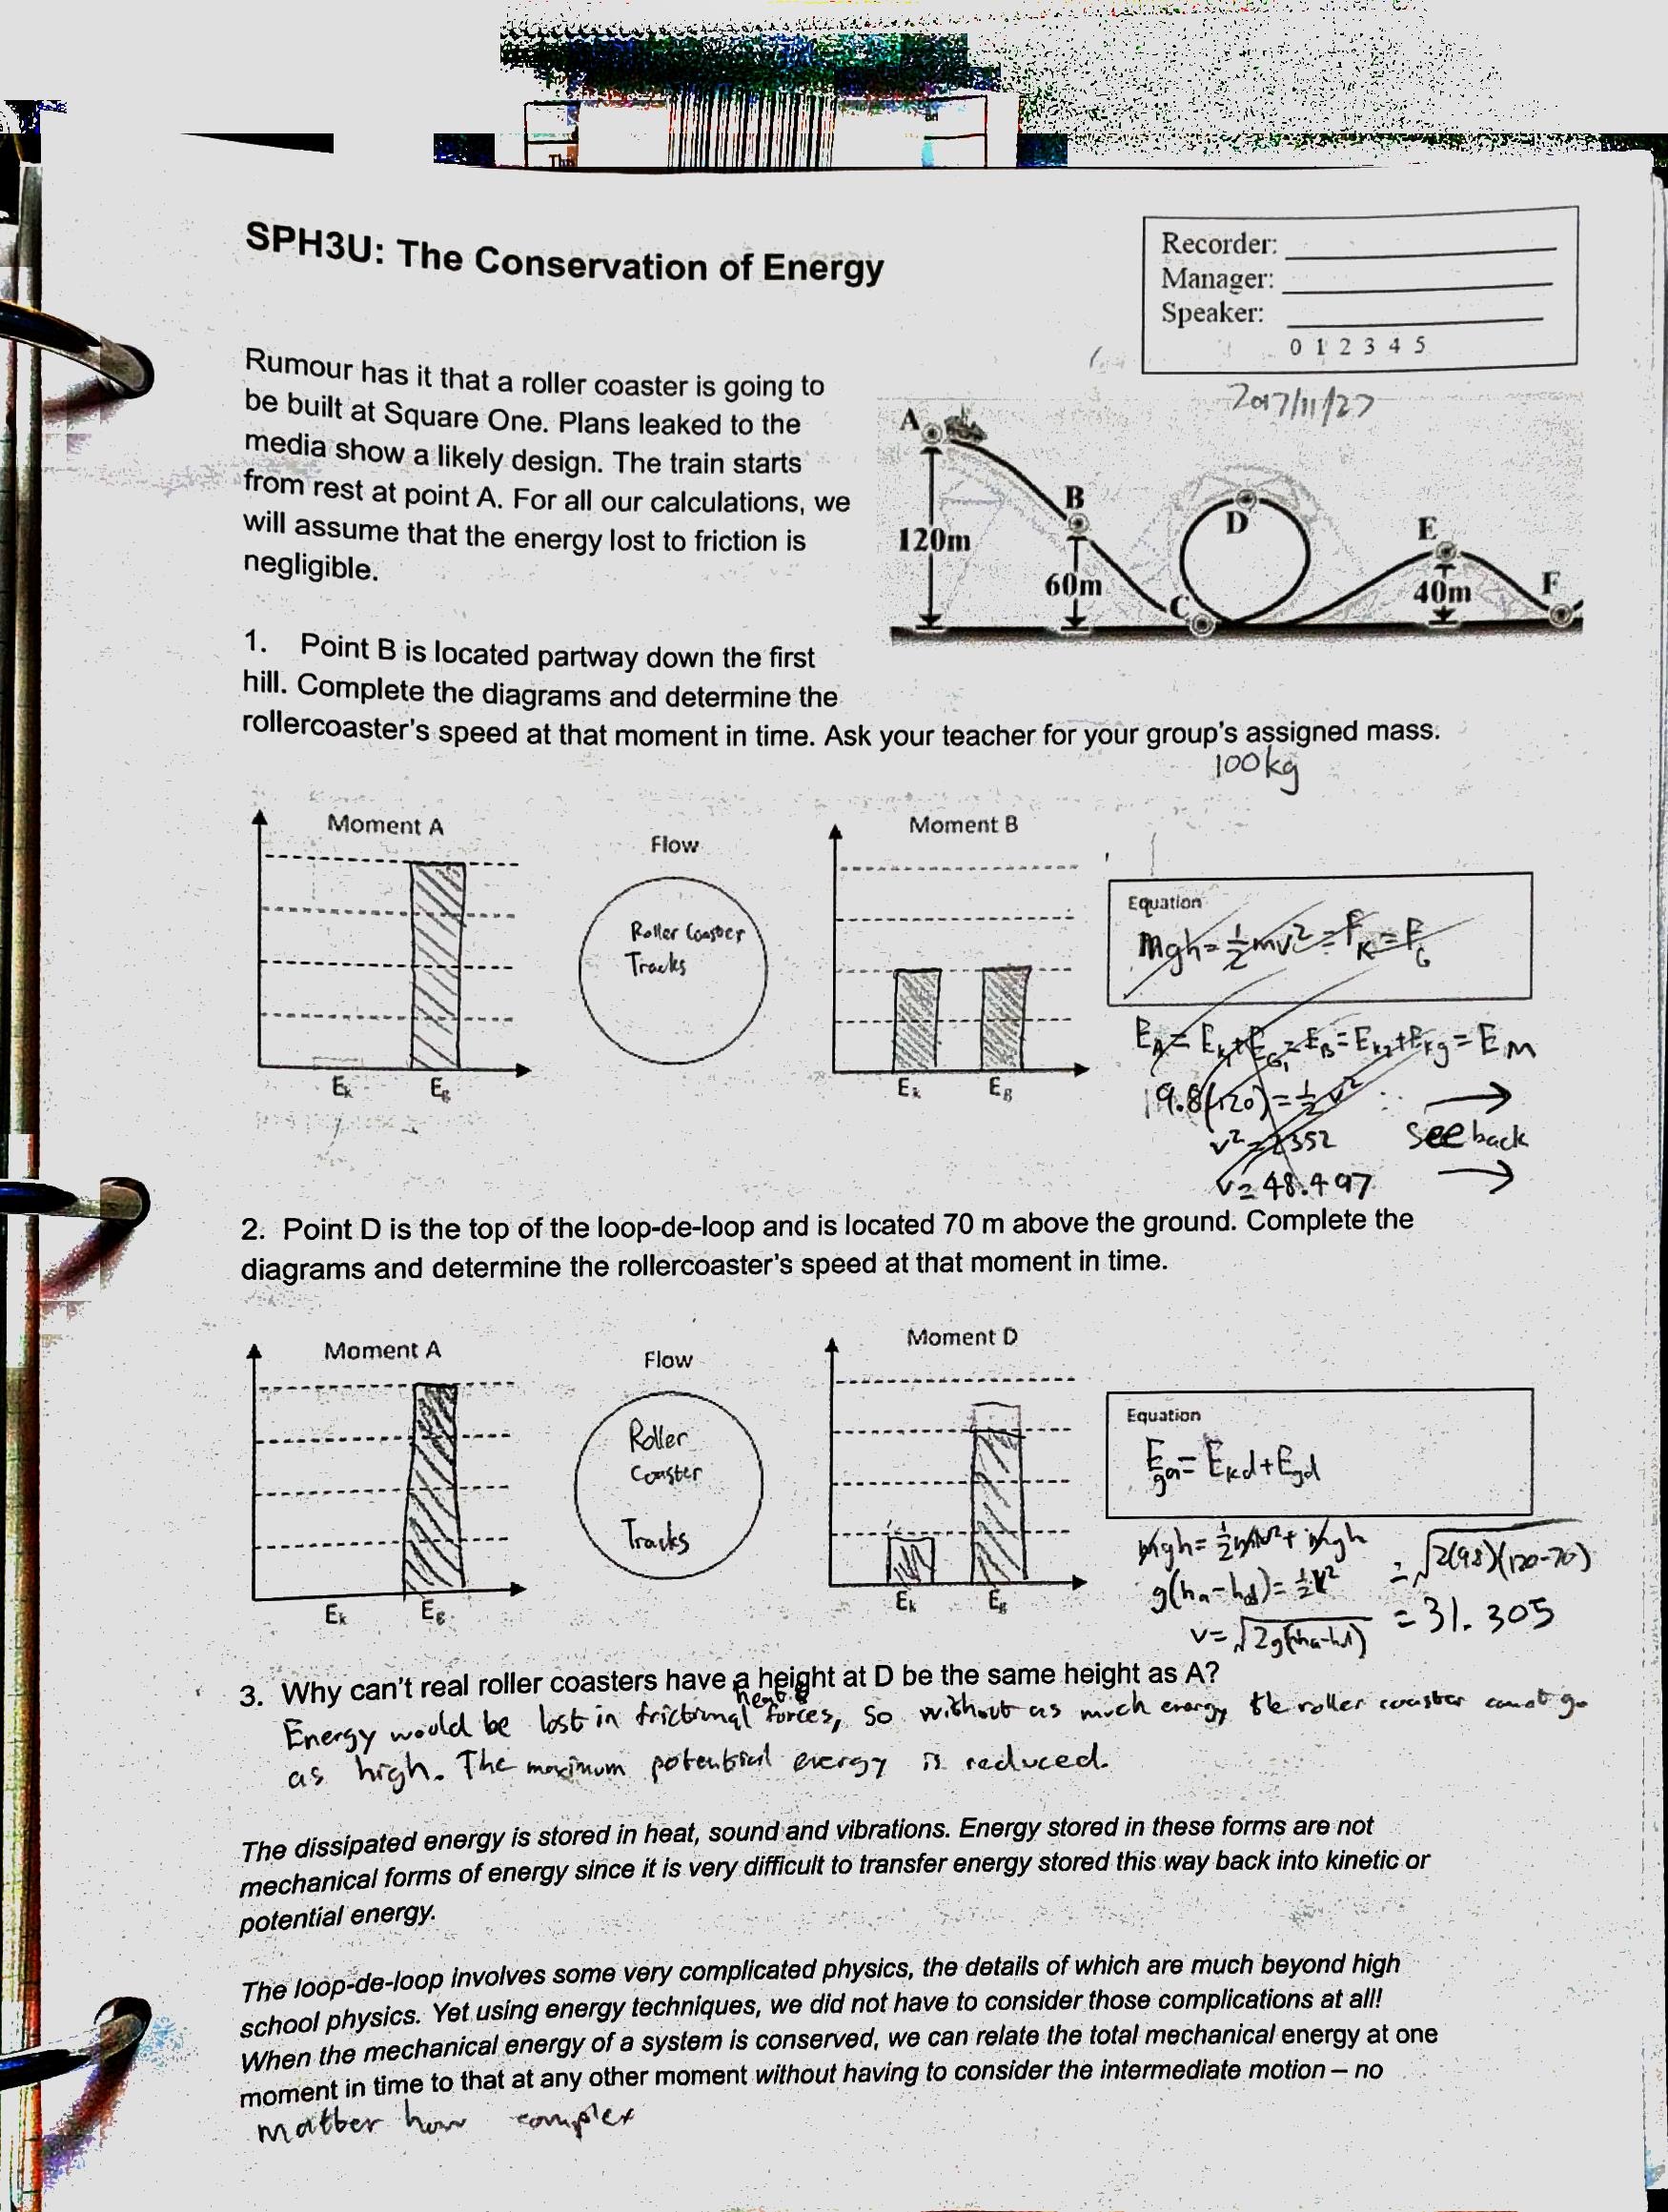 SPH3U: The Conservation of Energy
Recorder:
Manager:
Speaker:
0 1 2 3 4 5
2017/11/27
Rumour has it that a roller coaster is going to
be built at Square One. Plans leaked to the
media show a likely design. The train starts
from rest at point A. For all our calculations, we
will assume that the energy lost to friction is
negligible.
A
B
C
D
E
F
120m
60m
40m
1. Point B is located partway down the first
hill. Complete the diagrams and determine the
rollercoaster's speed at that moment in time. Ask your teacher for your group's assigned mass.
100kg
Moment A
Ek Eg
Flow
Roller Coaster
Tracks
Moment B
Ek Eg
Equation
mgh = ½mv² = Fk = FG
9.8(120) = ½v²
v² = 2352
v = 48.497
see back
2. Point D is the top of the loop-de-loop and is located 70 m above the ground. Complete the
diagrams and determine the rollercoaster's speed at that moment in time.
Moment A
Ek Eg
Flow
Roller
Coaster
Tracks
Moment D
Ek Eg
Equation
Ega = Ekd + Egd
mgh = ½mv² + mgh
g(ha - hd) = ½v²
v = √2g(ha-hd)
= √2(9.8)(120-70)
= 31.305
3. Why can't real roller coasters have a height at D be the same height as A?
Energy would be lost in frictional forces, so without as much energy the roller coaster cannot go
as high. The maximum potential energy is reduced.
The dissipated energy is stored in heat, sound and vibrations. Energy stored in these forms are not
mechanical forms of energy since it is very difficult to transfer energy stored this way back into kinetic or
potential energy.
The loop-de-loop involves some very complicated physics, the details of which are much beyond high
school physics. Yet using energy techniques, we did not have to consider those complications at all!
When the mechanical energy of a system is conserved, we can relate the total mechanical energy at one
moment in time to that at any other moment without having to consider the intermediate motion – no
matter how complex